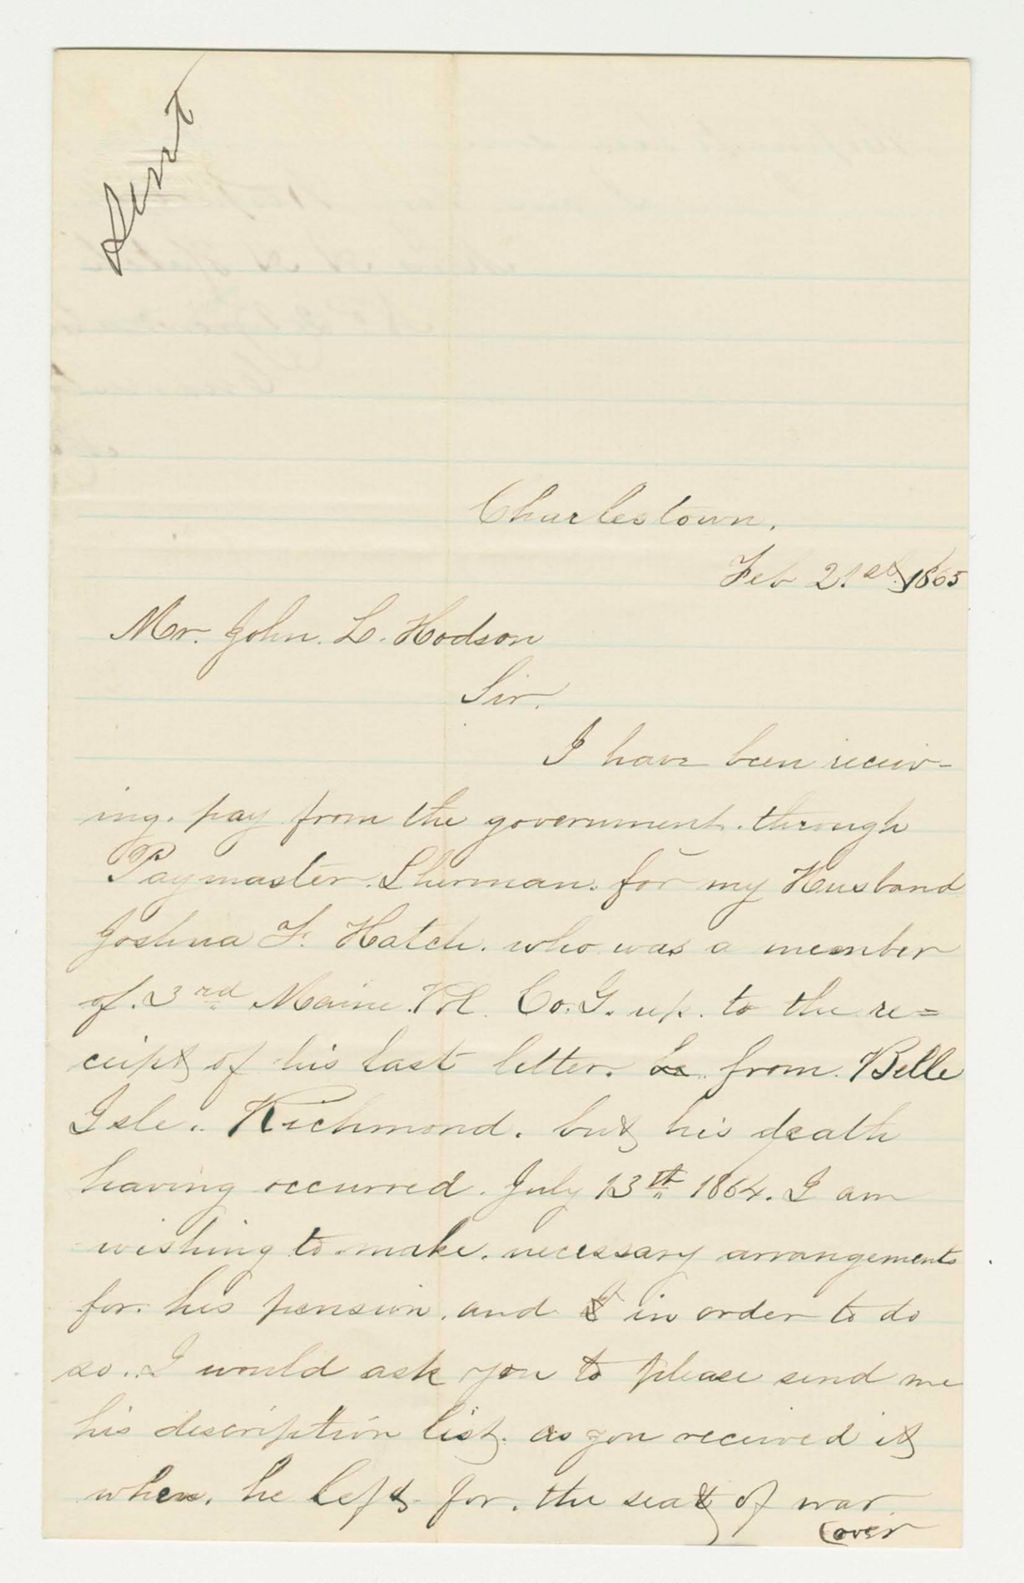 Sent
Charlestown.
Feb 21st, 1865
Mr. John. L. Hodson
Sir.
I have been receiv-
ing. pay from the government. through
Paymaster. Sherman. for my Husband
Joshua F. Hatch. who was a member
of. 3rd Maine. Co. G. up. to the re=
ceipt of his last letter. from. Belle
Isle. Richmond. but his death
having occurred. July 13th 1864. I am
wishing to make. necessary arrangements
for. his pension. and in order to do
so. I would ask you to please send me
his description list. as you received it
when. he left for. the seat of war
(over